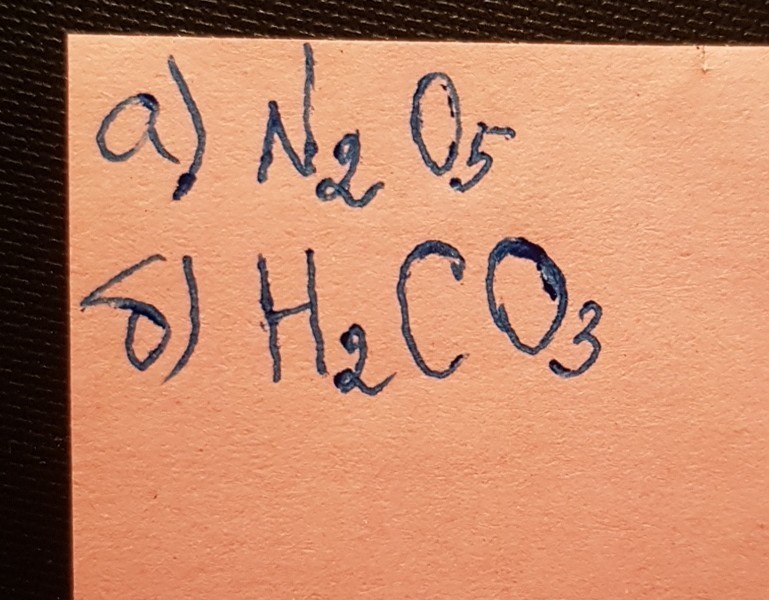 а) N₂O₅
б) H₂CO₃